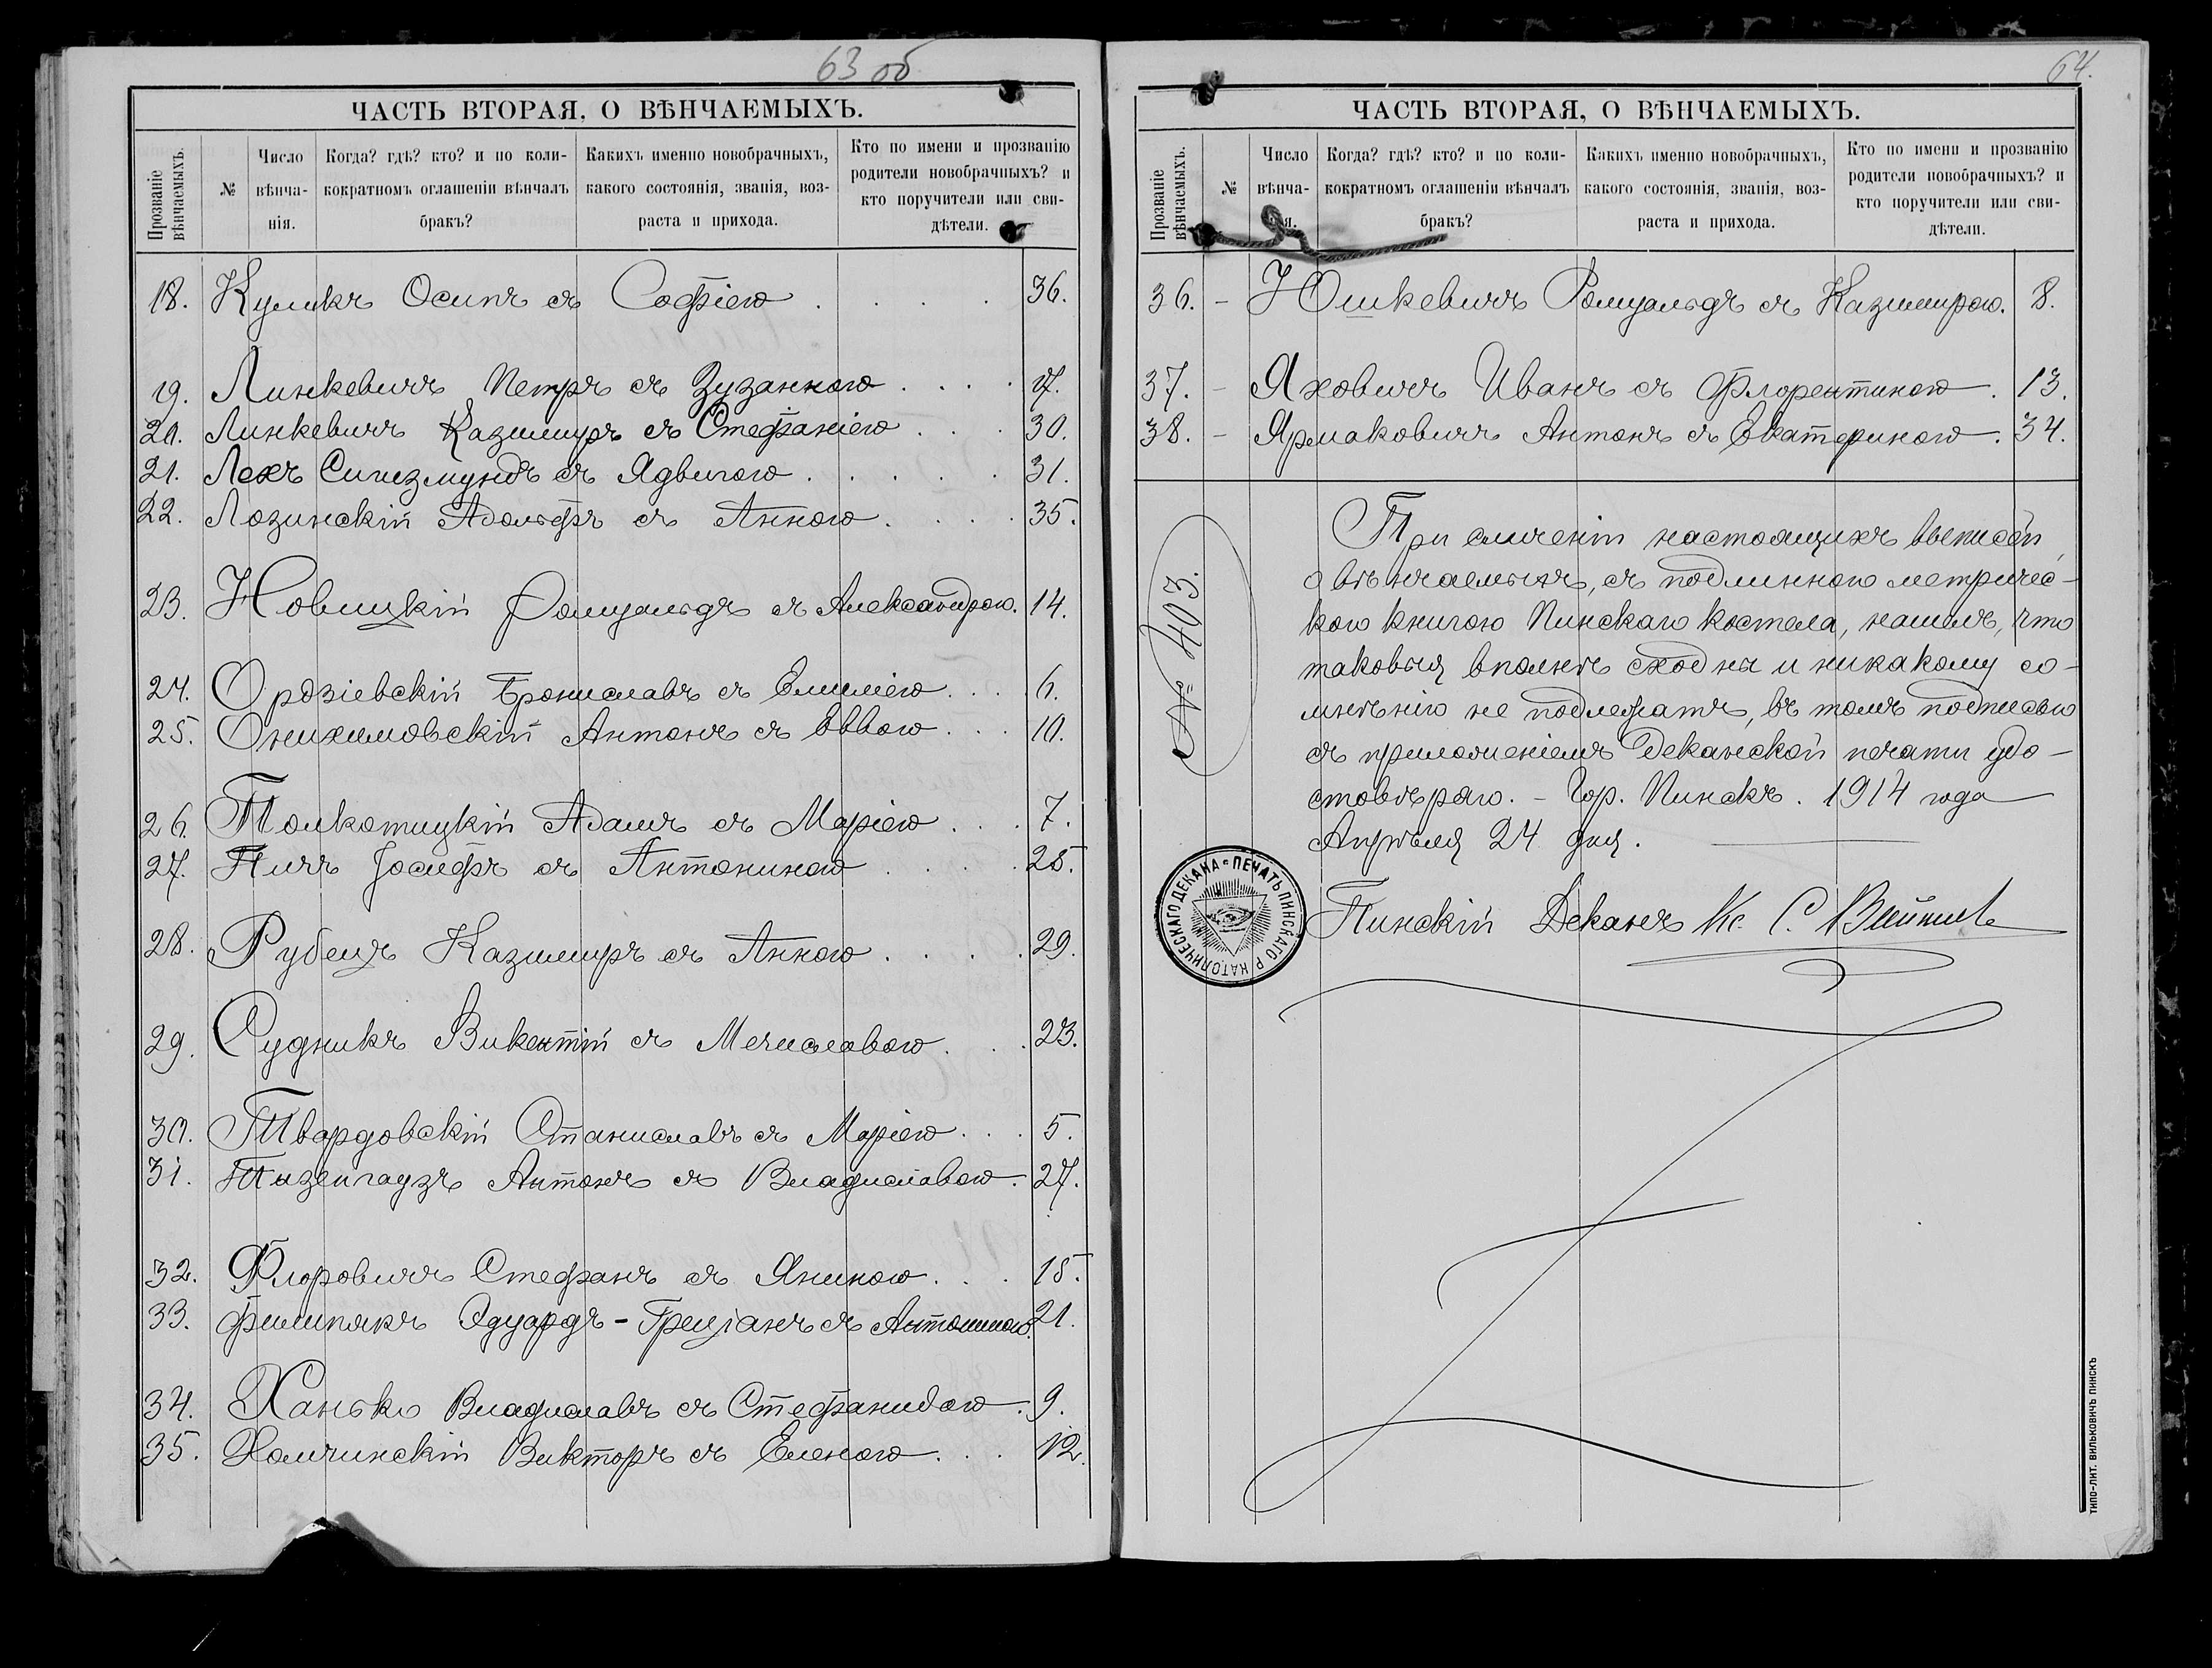 63 об
ЧАСТЬ ВТОРАЯ, О ВѢНЧАЕМЫХЪ.
Прозваніе вѣнчаемыхъ.
№
Число вѣнча-нія.
Когда? гдѣ? кто? и по коли-кократномъ оглашеніи вѣнчалъ бракъ?
Какихъ именно новобрачныхъ, какого состоянія, званія, воз-раста и прихода.
Кто по имени и прозванію родители новобрачныхъ? и кто поручители или сви-дѣтели.
18. Куликъ Осипъ съ Софіею . . . . 36.
19. Линкевичъ Петръ съ Зузанною . . . . 17.
20. Линкевичъ Казимиръ съ Стефаніею . . . 30.
21. Лехъ Сигизмундъ съ Ядвигою . . . . . 31.
22. Лозинскій Адольфъ съ Анною . . . . 35.
23. Новицкій Ромуальдъ съ Александрою. 14.
24. Ордзіевскій Брониславъ съ Емиліею . . . . 6.
25. Онихимовскій Антонъ съ Еввою . . . 10.
26. Полкотицкій Адамъ съ Маріею . . . 7.
27. Пичъ Іосифъ съ Антониною . . . . 25.
28. Рубецъ Казимиръ съ Анною . . . . 29.
29. Судникъ Викентій съ Мечиславою . . . 23.
30. Твардовскій Станиславъ съ Маріею . . . 5.
31. Тызенгаузъ Антонъ съ Владиславою . 27.
32. Флоровичъ Стефанъ съ Яниною . . . 15.
33. Филипякъ Эдуардъ-Греціанъ съ Антониною. 21.
34. Ханько Владиславъ съ Стефанидою . 9.
35. Холчинскій Викторъ съ Еленою . . . 12.
64.
ЧАСТЬ ВТОРАЯ, О ВѢНЧАЕМЫХЪ.
Прозваніе вѣнчаемыхъ.
№
Число вѣнча-
Когда? гдѣ? кто? и по коли-кократномъ оглашеніи вѣнчалъ бракъ?
Какихъ именно новобрачныхъ, какого состоянія, званія, воз-раста и прихода.
Кто по имени и прозванію родители новобрачныхъ? и кто поручители или сви-дѣтели.
36. - Юшкевичъ Ромуальдъ съ Казимирою. 8.
37. - Яховичъ Иванъ съ Флорентиною . 13.
38. - Ярмаковичъ Антонъ съ Екатериною . 34.
№ 403.
При сличеніи настоящихъ выписей
о вѣнчаемыхъ, съ подлинною метричес-
кою книгою Пинскаго костела, нашелъ, что
таковыя вполнѣ сходны и никакому со-
мнѣнію не подлежатъ, въ томъ подписью
съ приложеніемъ Деканской печати удо-
стовѣряю. - Гор. Пинскъ. 1914 года
Апрѣля 24 дня.
ПЕЧАТЬ ПИНСКАГО Р. КАТОЛИЧЕСКАГО ДЕКАНА
Пинскій Деканъ Кс. С.
ТИПО-ЛИТ. ВИЛЬКОВИЧЪ ПИНСКЪ